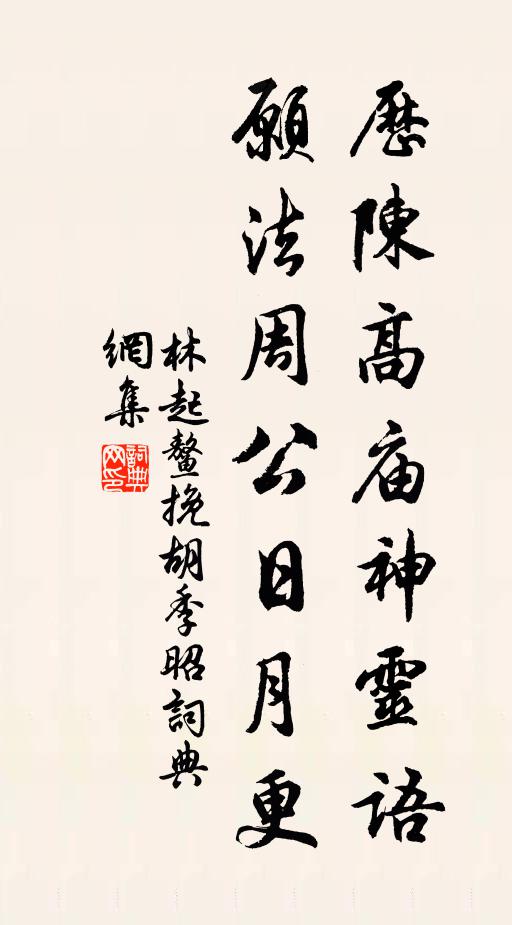 歷陳高庙神靈語
願法周公日月更
林起鼇挽胡季昭詞典
網集
詞典
网印